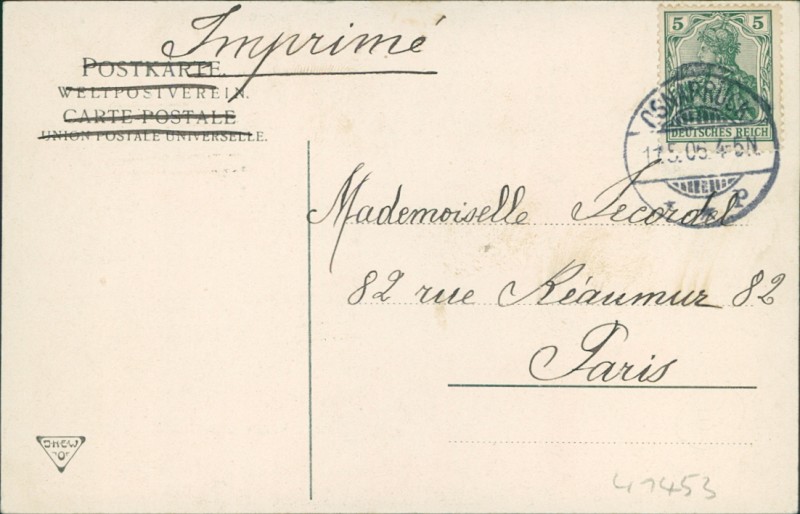 Imprimé
POSTKARTE.
WELTPOSTVEREIN.
CARTE POSTALE
UNION POSTALE UNIVERSELLE.
5 5
DEUTSCHES REICH
OSNABRÜCK
17.5.05.4-5N.
* * P
Mademoiselle Lecordel
82 rue Réaumur 82
Paris
DHCW
41453